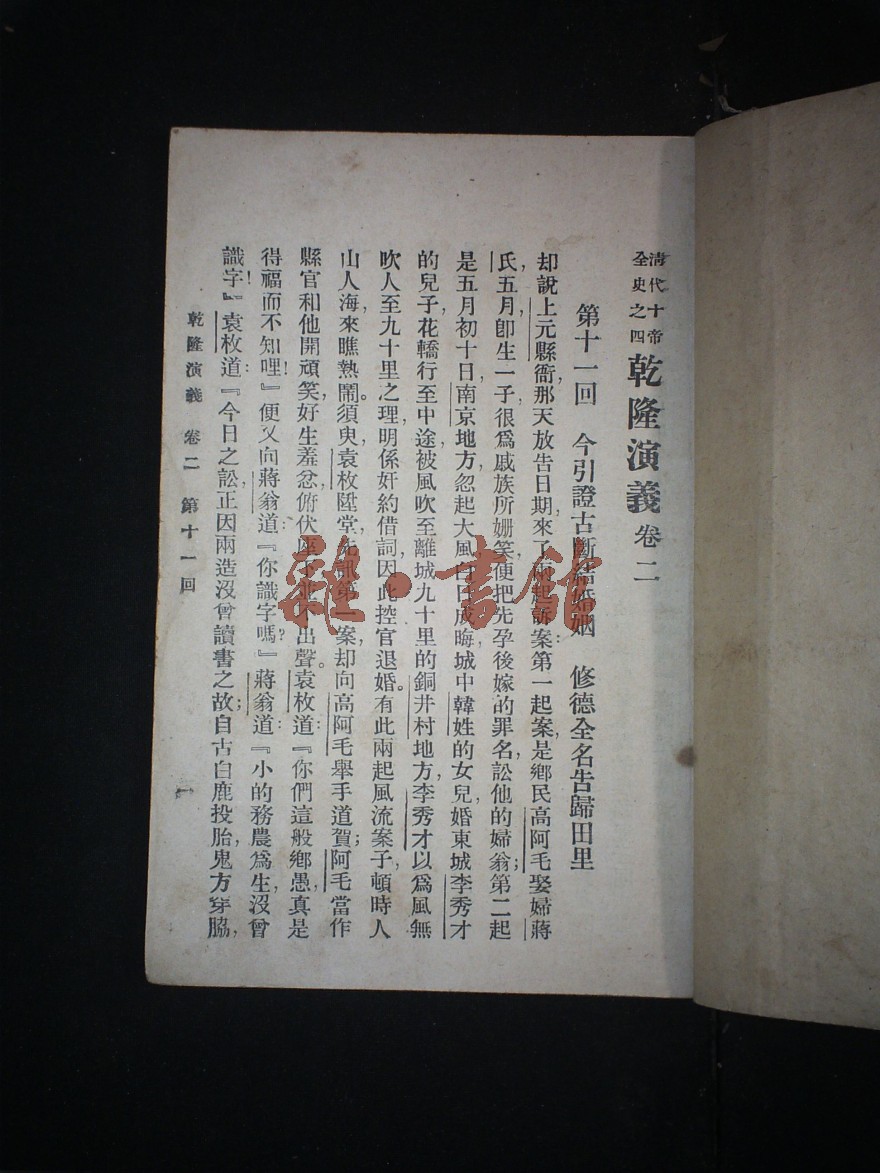 清代十帝
全史之四
乾隆演義 卷二
第十一回 今引證古斷結婚姻 修德全名告歸田里
却說上元縣衙那天放告日期，來了兩起訴案：第一起案，是鄉民高阿毛娶婦蔣
氏，五月卽生一子，很爲戚族所姍笑，便把先孕後嫁的罪名，訟他的婦翁；第二起
是五月初十日，南京地方忽起大風，白日成晦，城中韓姓的女兒，婚東城李秀才
的兒子，花轎行至中途，被風吹至離城九十里的銅井村地方，李秀才以爲風無
吹人至九十里之理，明係奸約借詞，因此控官退婚。有此兩起風流案子，頓時人
山人海，來瞧熱鬧。須臾，袁枚陞堂，先訊第一案，却向高阿毛舉手道賀；阿毛當作
縣官和他開頑笑，好生羞忿，俯伏座下，並不出聲。袁枚道：『你們這般鄉愚，眞是
得福而不知哩！』便又向蔣翁道：『你識字嗎？』蔣翁道：『小的務農爲生，沒曾
識字！』袁枚道：『今日之訟，正因兩造沒曾讀書之故；自古白鹿投胎，鬼方穿脇，
乾隆演義 卷二 第十一回
一
雜·書館